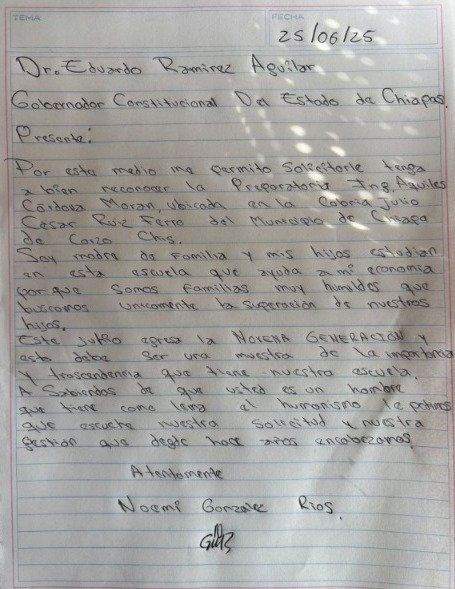 TEMA
FECHA
25/06/25
Dr. Eduardo Ramirez Aguilar
Gobernador Constitucional Del Estado de Chiapas.
Presente:
Por este medio me permito Solicitarle tenga
a bien reconocer la Preparatoria Ing. Aquiles
Córdova Moran, Ubicada en la Colonia Julio
Cesar Ruiz Ferro del Municipio de Chiapa
de Corzo Chis.
Soy madre de Familia y mis hijos estudian
en esta escuela que ayuda a mi economia
por que Somos Familias muy humildes que
buscamos unicamente la superación de nuestros
hijos.
Este Julio egresa la NOVENA GENERACIÓN y
esto debe Ser una muestra de la importancia
y trascendencia que tiene nuestra escuela.
A Sabiendas de que usted es un hombre
que tiene como lema el humanismo le pedimos
que escuche nuestra Solicitud y nuestra
gestion que desde hace años encabezamos.
Atentamente
Noemi Gonzalez Rios.